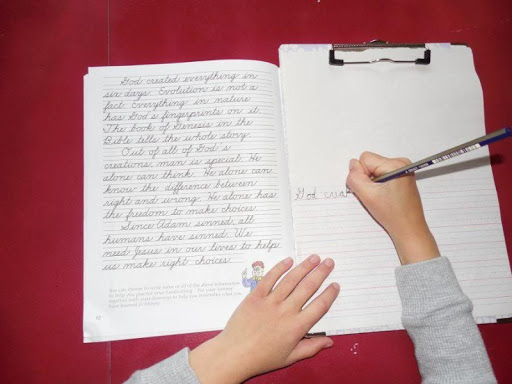 God created everything in
six days. Evolution is not a
fact. Everything in nature
has God's fingerprints on it.
The book of Genesis in the
Bible tells the whole story.
Out of all of God's
creations, man is special. He
alone can think. He alone can
know the difference between
right and wrong. He alone has
the freedom to make choices.
Since Adam sinned, all
humans have sinned. We
need Jesus in our lives to help
us make right choices.
God creat